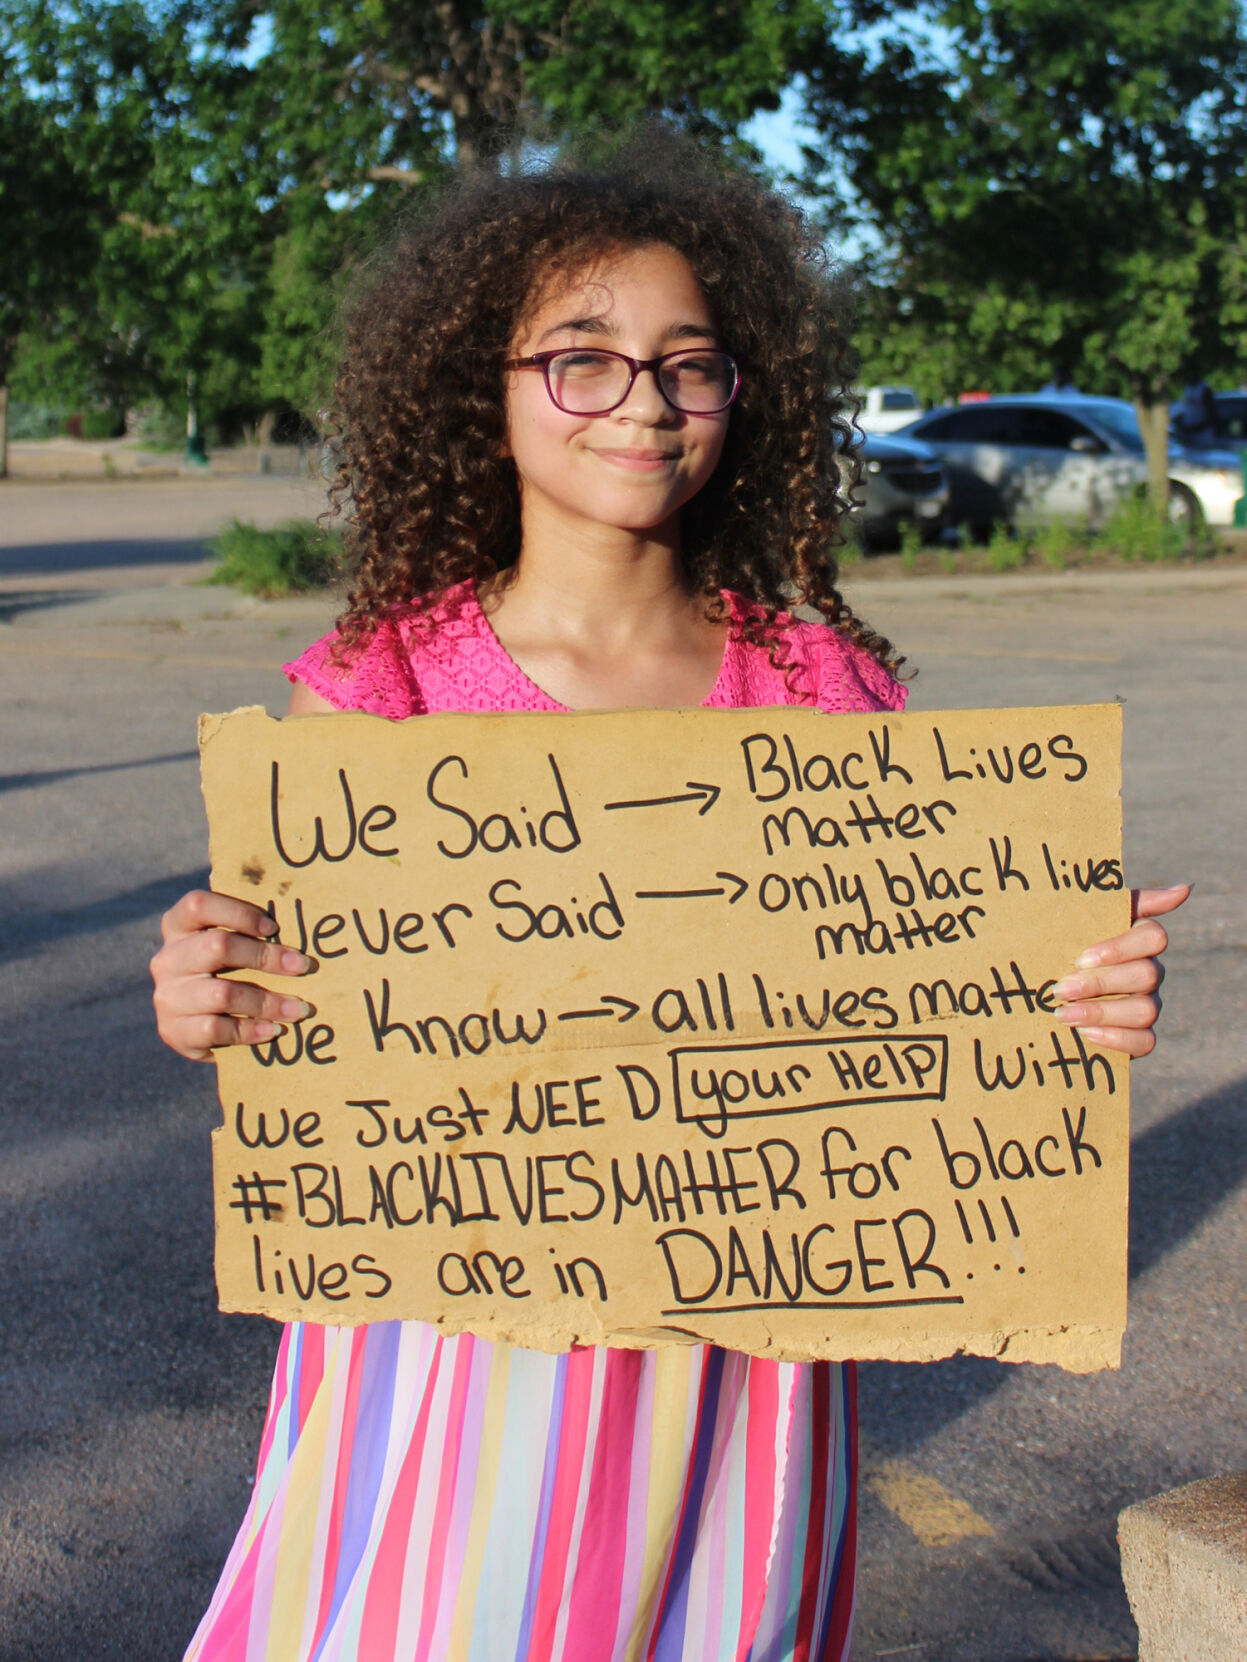 We Said → Black Lives
matter
Never Said → only black lives
matter
We Know → all lives matte
we Just NEED your Help With
#BLACKLIVESMATTER for black
lives are in DANGER!!!